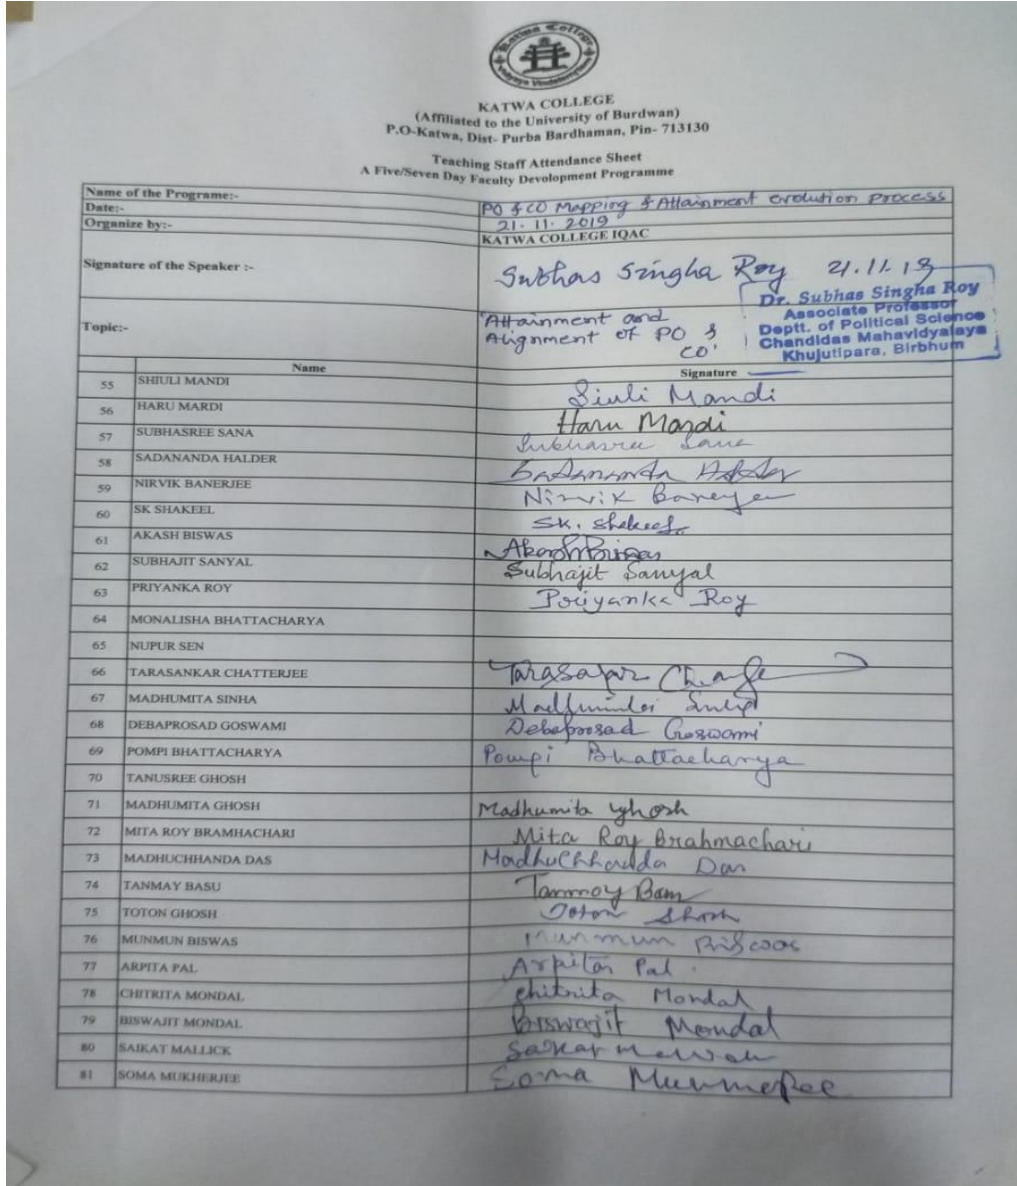 Katwa College
KATWA COLLEGE
(Affiliated to the University of Burdwan)
P.O-Katwa, Dist- Purba Bardhaman, Pin- 713130
Teaching Staff Attendance Sheet
A Five/Seven Day Faculty Devolopment Programme
Name of the Programe:- PO & CO Mapping & Attainment evolution process
Date:- 21. 11. 2019
Organize by:- KATWA COLLEGE IQAC
Signature of the Speaker :- Subhas Singha Roy 21.11.19
Dr. Subhas Singha Roy
Associate Professor
Deptt. of Political Science
Chandidas Mahavidyalaya
Khujutipara, Birbhum
Topic:- 'Attainment and
Alignment of PO &
CO'
Name Signature
55 SHIULI MANDI Siuli Mandi
56 HARU MARDI Haru Mardi
57 SUBHASREE SANA Subhasree Sana
58 SADANANDA HALDER Sadananda Halder
59 NIRVIK BANERJEE Nirvik Banerjee
60 SK SHAKEEL SK. Shakeel
61 AKASH BISWAS Akash Biswas
62 SUBHAJIT SANYAL Subhajit Sanyal
63 PRIYANKA ROY Priyanka Roy
64 MONALISHA BHATTACHARYA
65 NUPUR SEN
66 TARASANKAR CHATTERJEE
67 MADHUMITA SINHA Madhumita Sinha
68 DEBAPROSAD GOSWAMI Debaprosad Goswami
69 POMPI BHATTACHARYA Pompi Bhattacharya
70 TANUSREE GHOSH
71 MADHUMITA GHOSH Madhumita Ghosh
72 MITA ROY BRAMHACHARI Mita Roy Brahmachari
73 MADHUCHHANDA DAS Madhuchhanda Das
74 TANMAY BASU Tanmoy Basu
75 TOTON GHOSH Toton Ghosh
76 MUNMUN BISWAS Munmun Biswas
77 ARPITA PAL Arpita Pal
78 CHITRITA MONDAL Chitrita Mondal
79 BISWAJIT MONDAL Biswajit Mondal
80 SAIKAT MALLICK
81 SOMA MUKHERJEE Soma Mukherjee